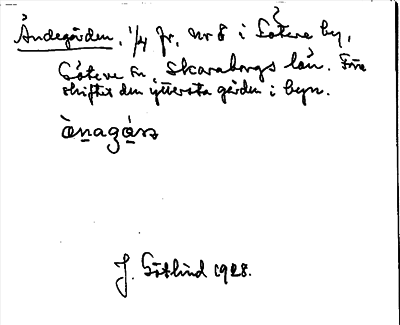 Åndegården, 1/4 fr. nr 8 i Göteve by,
Göteve sn, Skaraborgs län. Före
skiftet den yttersta gården i byn.
ànagá
J. Götlind 1928.